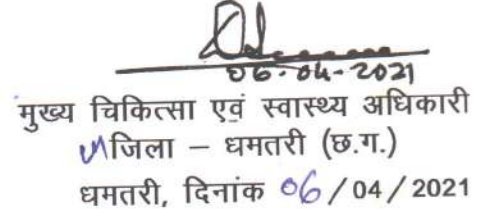 06-04-2021
मुख्य चिकित्सा एवं स्वास्थ्य अधिकारी
जिला – धमतरी (छ.ग.)
धमतरी, दिनांक 06/04/2021